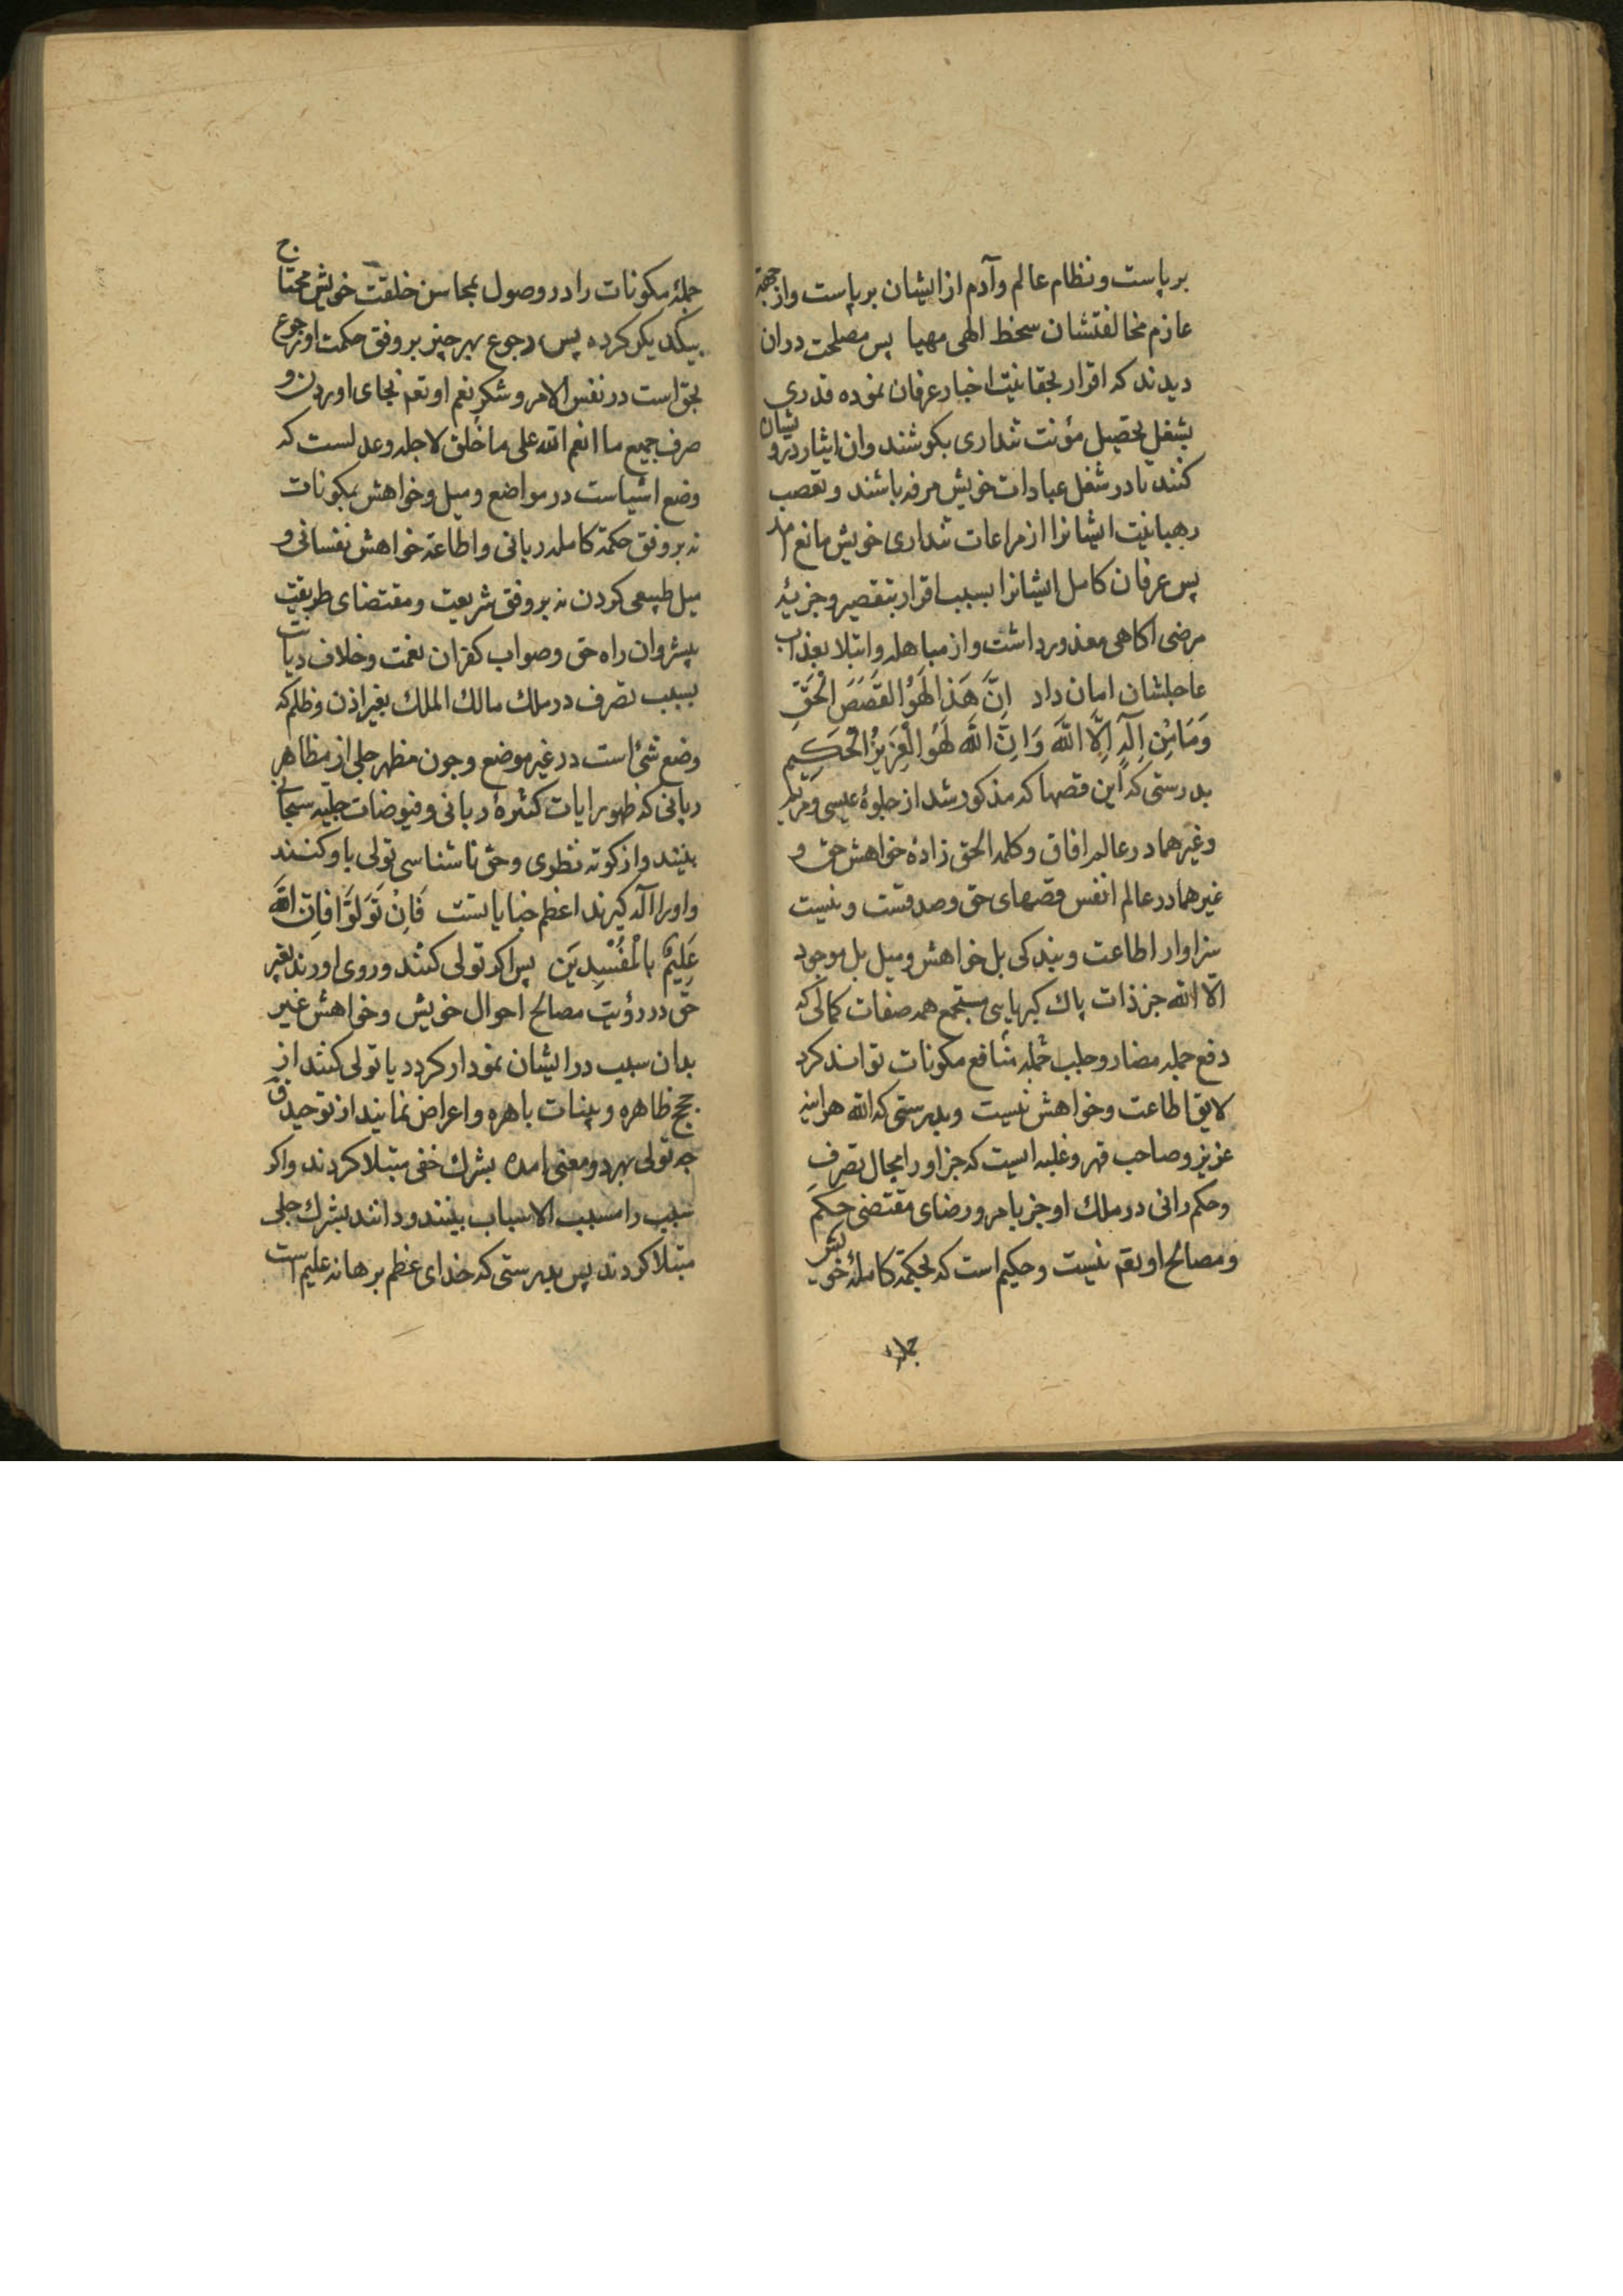 برپاست و نظام عالم و آدم از ایشان برپاست و از جهة
عازم مخالفتشان سخط الهی مهیا پس مصلحت دران
دیدند که اقرار بحقانیت اخبار عرفان نموده قدری
بشغل تحصیل مؤنت شداری بکوشند و ان ایثار درو یشان
کنند تا در شغل عبادات خویش مرفه باشند و تعصب
رهبانیت ایشانرا از مراعات شداری خویش مانع امد
پس عرفان کامل ایشانرا بسبب اقرار بتقصیر و جزیهٔ
مرضی اکاهی معذور داشت و از مباهله و ابتلا بعذاب
عاجلشان امان داد اِنَّ هَذَا لَهُوَ القَصَصَ الْحَقِّ
وَمَا مِنْ اِلَهٍ اِلَّا اللّهَ وَاِنَّ اللّهَ لَهُوَ الْعَزِیزُ الْحَکِیم
بدرستی که این قصها که مذکور شد از جلوهٔ عیسی و مریم
و غیرهما در عالم افاق و کلمة الحق زادهٔ خواهش حق و
غیرهما در عالم انفس قصهای حق و صدقست و نیست
سزاوار اطاعت و بندکی بل خواهش و میل بل موجود
الا الله جز ذات پاك کبریایی مستجمع همه صفات کمالی که
دفع جمله مضار و جلب جمله منافع مکونات تواند کرد
لایق اطاعت و خواهش نیست و بدرستی که الله هراینه
عزیز و صاحب قهر و غلبه ایست که جز او را مجال تصرف
و حکم رانی در ملك او جز بامر و رضای مقتضی حکم
و مصالح او بقم نیست و حکیم است که بحکمة کاملهٔ خویش
جملهٔ
جملهٔ مکونات را در وصول بمحاسن خلقت خویش محتاج
بیکدیکر کرده پس رجوع بهر چیز بر وفق حکمت او رجوع
بحق است در نفس الامر و شکر نعم او تعم بجای اوردن و
صرف جمیع ما انعم الله علی ما خلق لاجله و عدلست که
وضع اشیاست در مواضع و میل و خواهش بمکونات
نه بر وفق حکمة کامله ربانی و اطاعة خواهش نفسانی و
میل طبیعی کردن نه بر وفق شریعت و مقتضای طریقت
پیشروان راه حق و صواب کفران نعمت و خلاف دیانت
بسبب تصرف در ملك مالك الملك بغیر اذن و ظلم که
وضع شئ است در غیر موضع و چون مظهر جلی از مظاهر
ربانی که ظهور ایات کثیرهٔ ربانی و فیوضات جلیه سبحانی
بینند و از کوته نظری و حق ناشناسی تولی باو کنند
و او را اله کیرند اعظم جنایاتست فَاِنْ تَوَلَوَّا فَاِنَّ اللّهَ
عَلِیمٌ بِالْمُفْسِدِیَن پس اکر تولی کنند و روی اورند بغیر
حق در رؤیت مصالح احوال خویش و خواهش غیر
بدان سبب در ایشان نمودار کردد یا تولی کنند از
حجج ظاهره و بینات باهره و اعراض نمایند از توحید حق
چه تولی بهر دو معنی امده بشرك خفی مبتلا کردند و اکر
سبب را مسبب الاسباب بینند و دانند بشرك جلی
مبتلا کردند پس بدرستی که خدای عظم برهانه علیم است